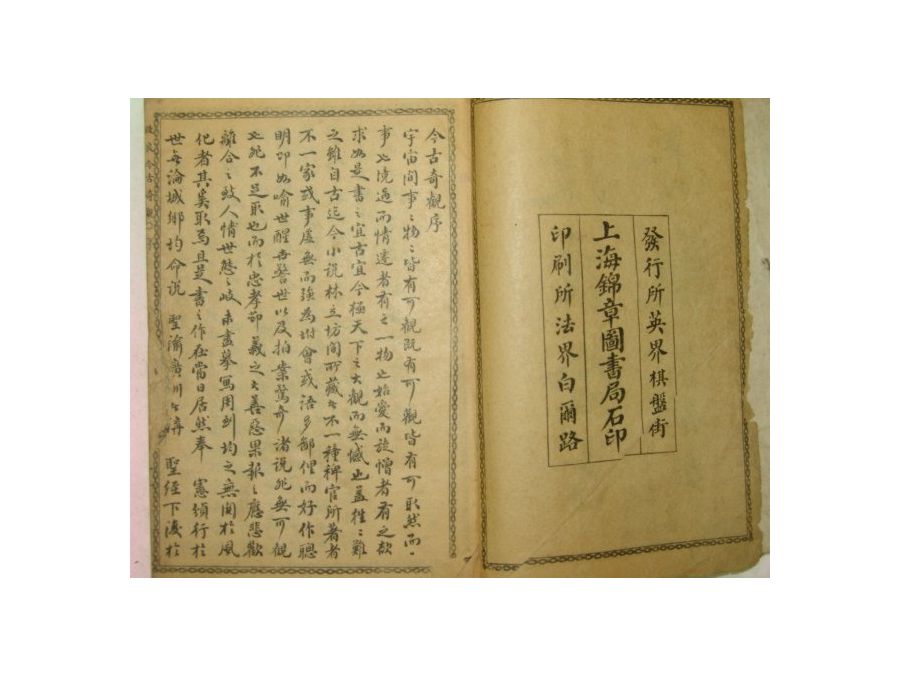 發行所英界棋盤街
上海錦章圖書局石印
印刷所法界白爾路
今古奇觀序
宇宙間事〻物〻皆有可觀既有可觀皆有可取然而一
事也境過而情遷者有之一物也始愛而旋憎者有之欲
求如是書之宜古宜今極天下之大觀而無憾也蓋往〻難
之雖自古迄今小說林立坊間所藏者不一種稗官所著者
不一家或事虛無而強為附會或語多鄙俚而好作聰
明即如喻世醒世警世以及拍案驚奇諸說非無可觀
也此不足取也而於忠孝節義之大善惡果報之應悲歡
離合之致人情世態之歧未盡摹寫周到均之無關於風
化者其奚取焉且是書之作在當日居然奉 憲頒行於
世每論城鄉均命說 聖諭廣訓者講 聖經下淺於